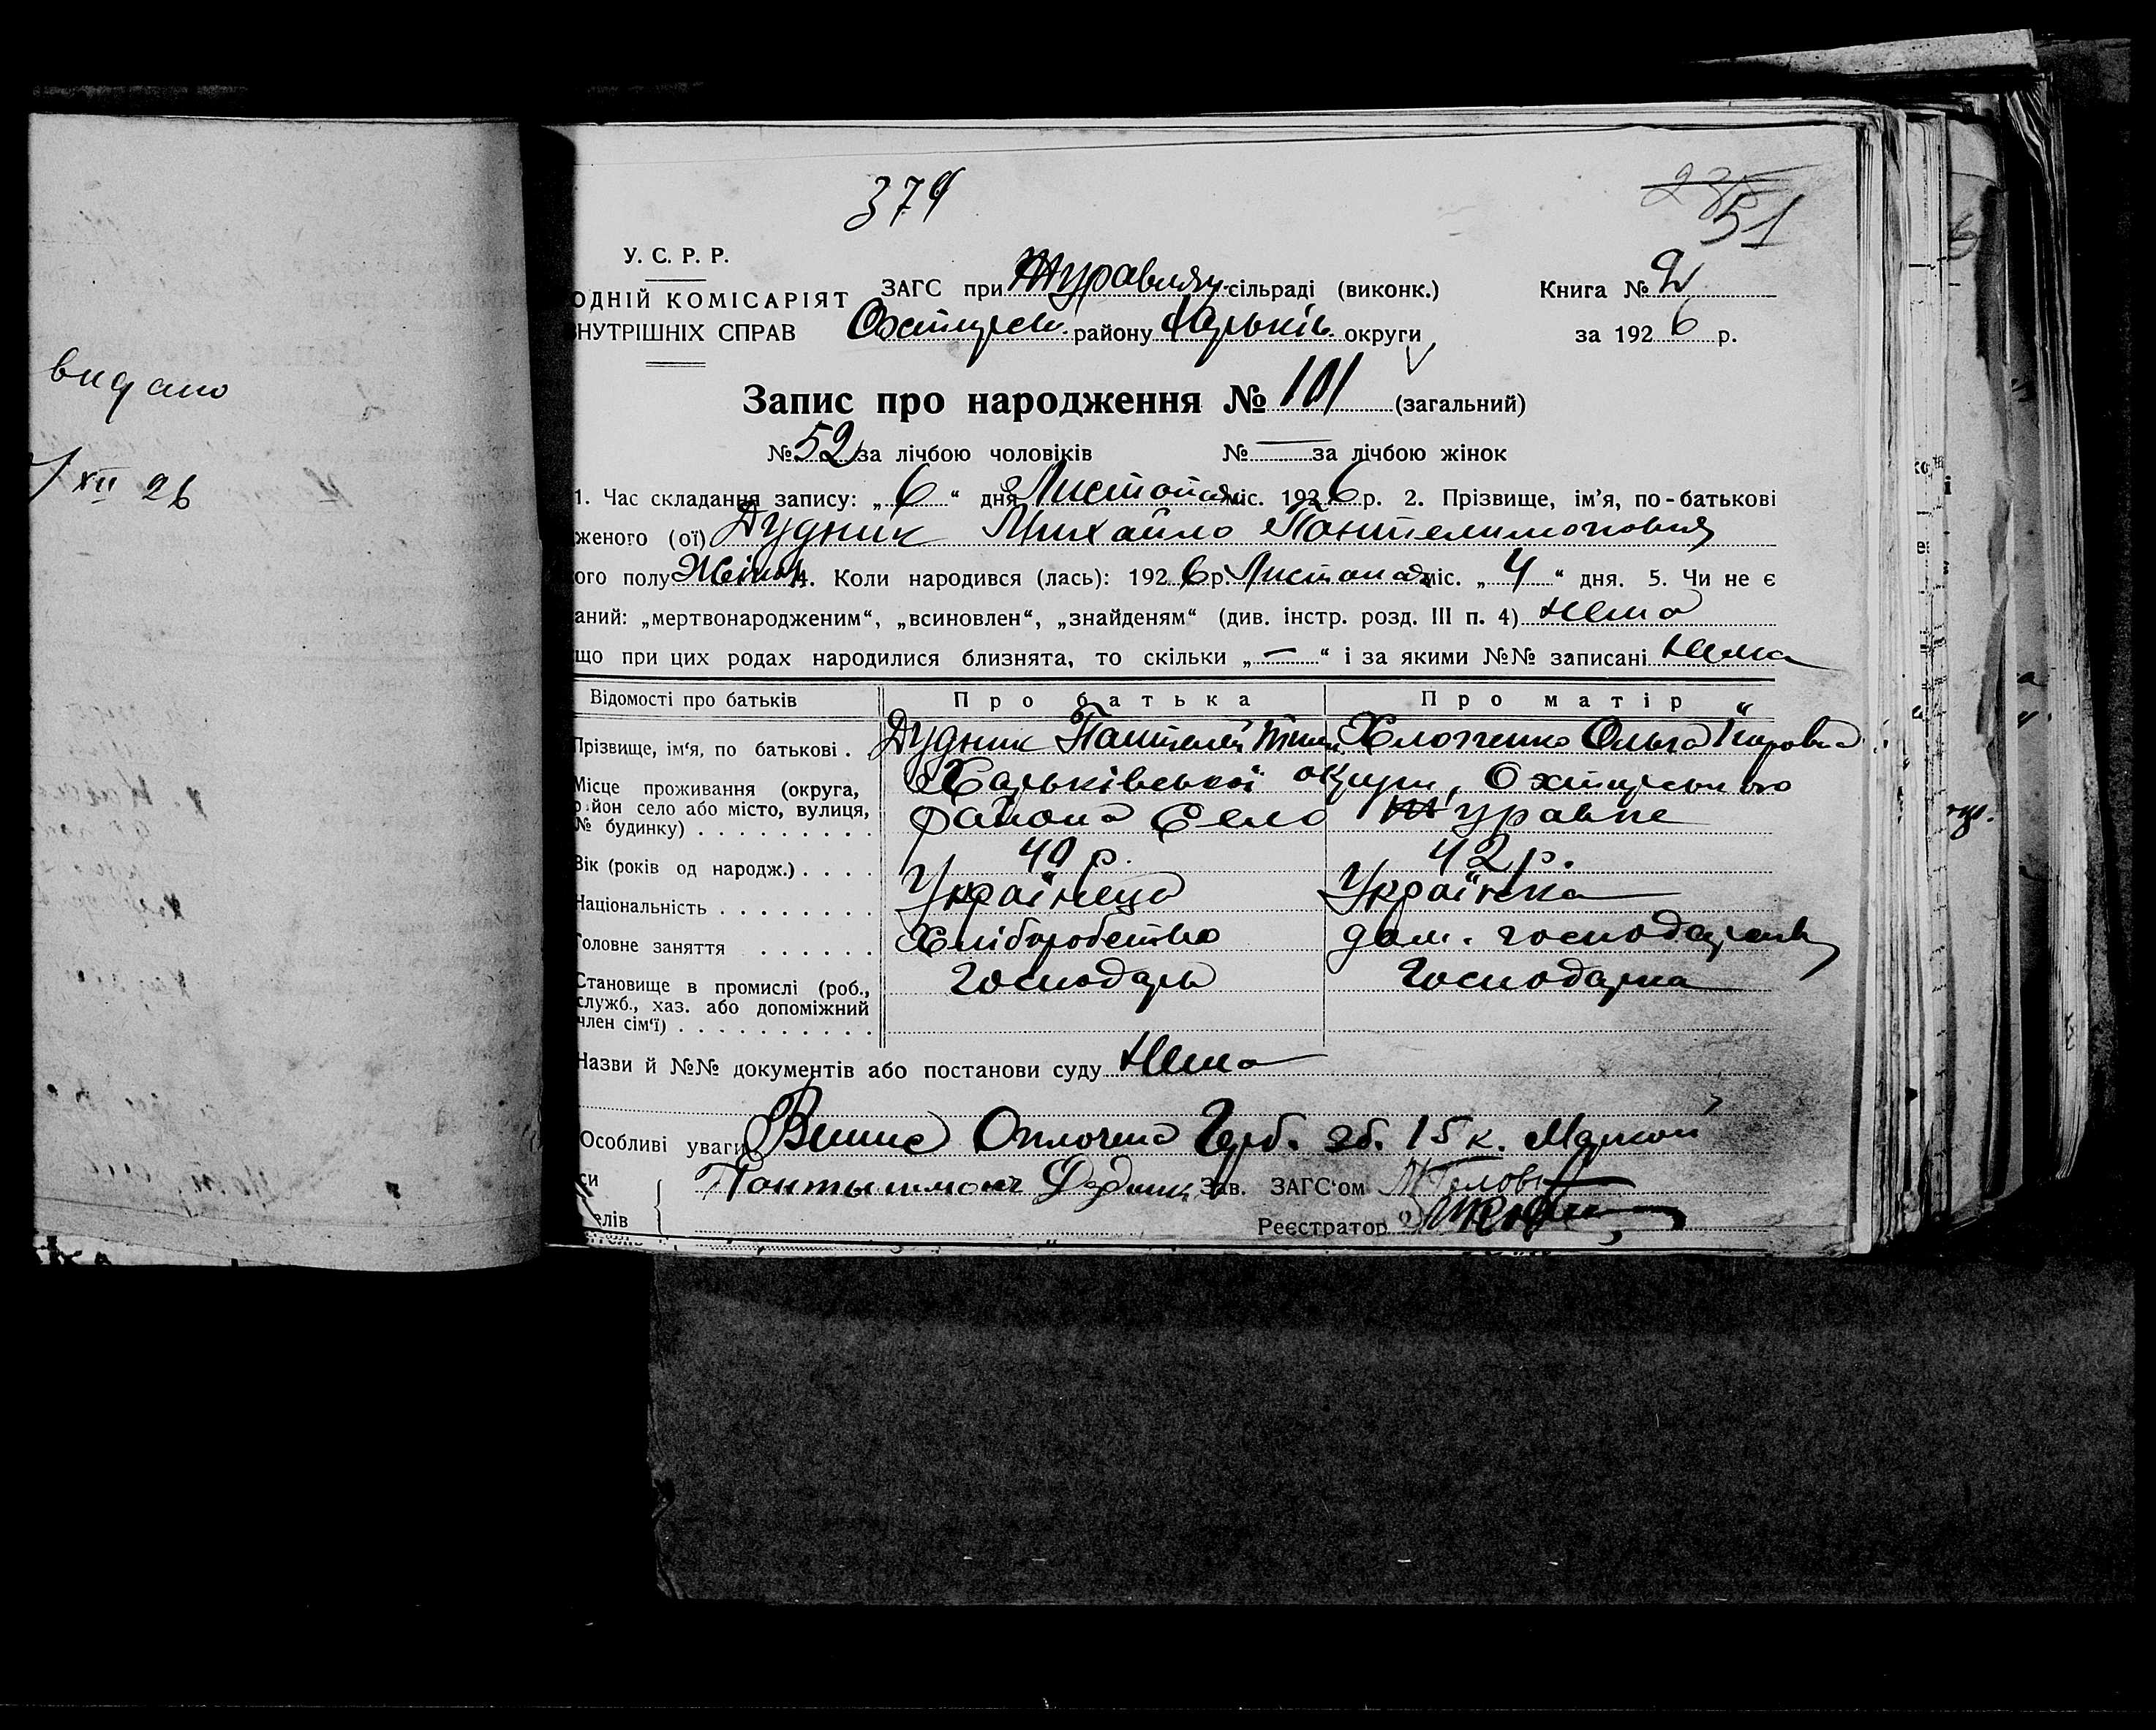 видано
XII 26
379
51
У. С. Р. Р.
ОДНІЙ КОМІСАРІЯТ
ВНУТРІШНІХ СПРАВ
ЗАГС при Журавлян. сільраді (виконк.)
Охтирськ. району Харьків. округи
Книга № 2
за 1926 р.
Запис про народження № 101 (загальний)
№ 52 за лічбою чоловіків № — за лічбою жінок
1. Час складання запису: „6“ дня Листопада міс. 1926 р. 2. Прізвище, ім'я, по-батькові
женого (ої) Дудник Михайло
ого полу 4. Коли народився (лась): 1926 р. Листопада міс. „4“ дня. 5. Чи не є
аний: „мертвонародженим“, „всиновлен“, „знайденям“ (див. інстр. розд. III п. 4) нема
що при цих родах народилися близнята, то скільки „—“ і за якими №№ записані нема
Відомості про батьків Про батька Про матір
Прізвище, ім'я, по батькові . Дудник Ольга
Місце проживання (округа, район село або місто, вулиця, № будинку) . . . . . . . . . Харьківської округи, Охтирського
района Село Журавне
Вік (років од народж.) . . . . 40 р. 42 р.
Національність . . . . . . . . Українець Українка
Головне заняття . . . . . . Хліборобство дом. господарств
Становище в промислі (роб., служб., хаз. або допоміжний член сім'ї) . . . . . . . . . . Господарь Господарка
Назви й №№ документів або постанови суду нема
Особливі уваги Оплочена Герб. зб. 15 к. Маркой
си Дудник Зав. ЗАГС'ом
елів Реєстратор